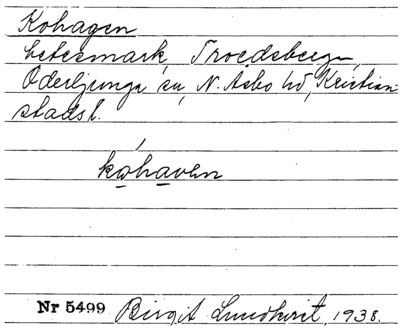 Kohagen
betesmark, Troedsberga,
Oderljunga sn, N. Asbo hd, Kristian
stads l.
kohaven
Nr 5499 Birgit Lundkvist, 1938.